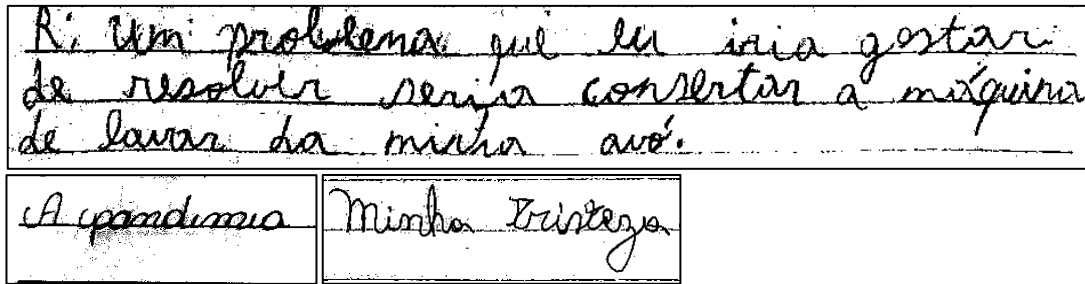 R: Um problema que eu iria gostar
de resolver seria consertar a máquina
de lavar da minha avó.
A pandemia
Minha Tristeza